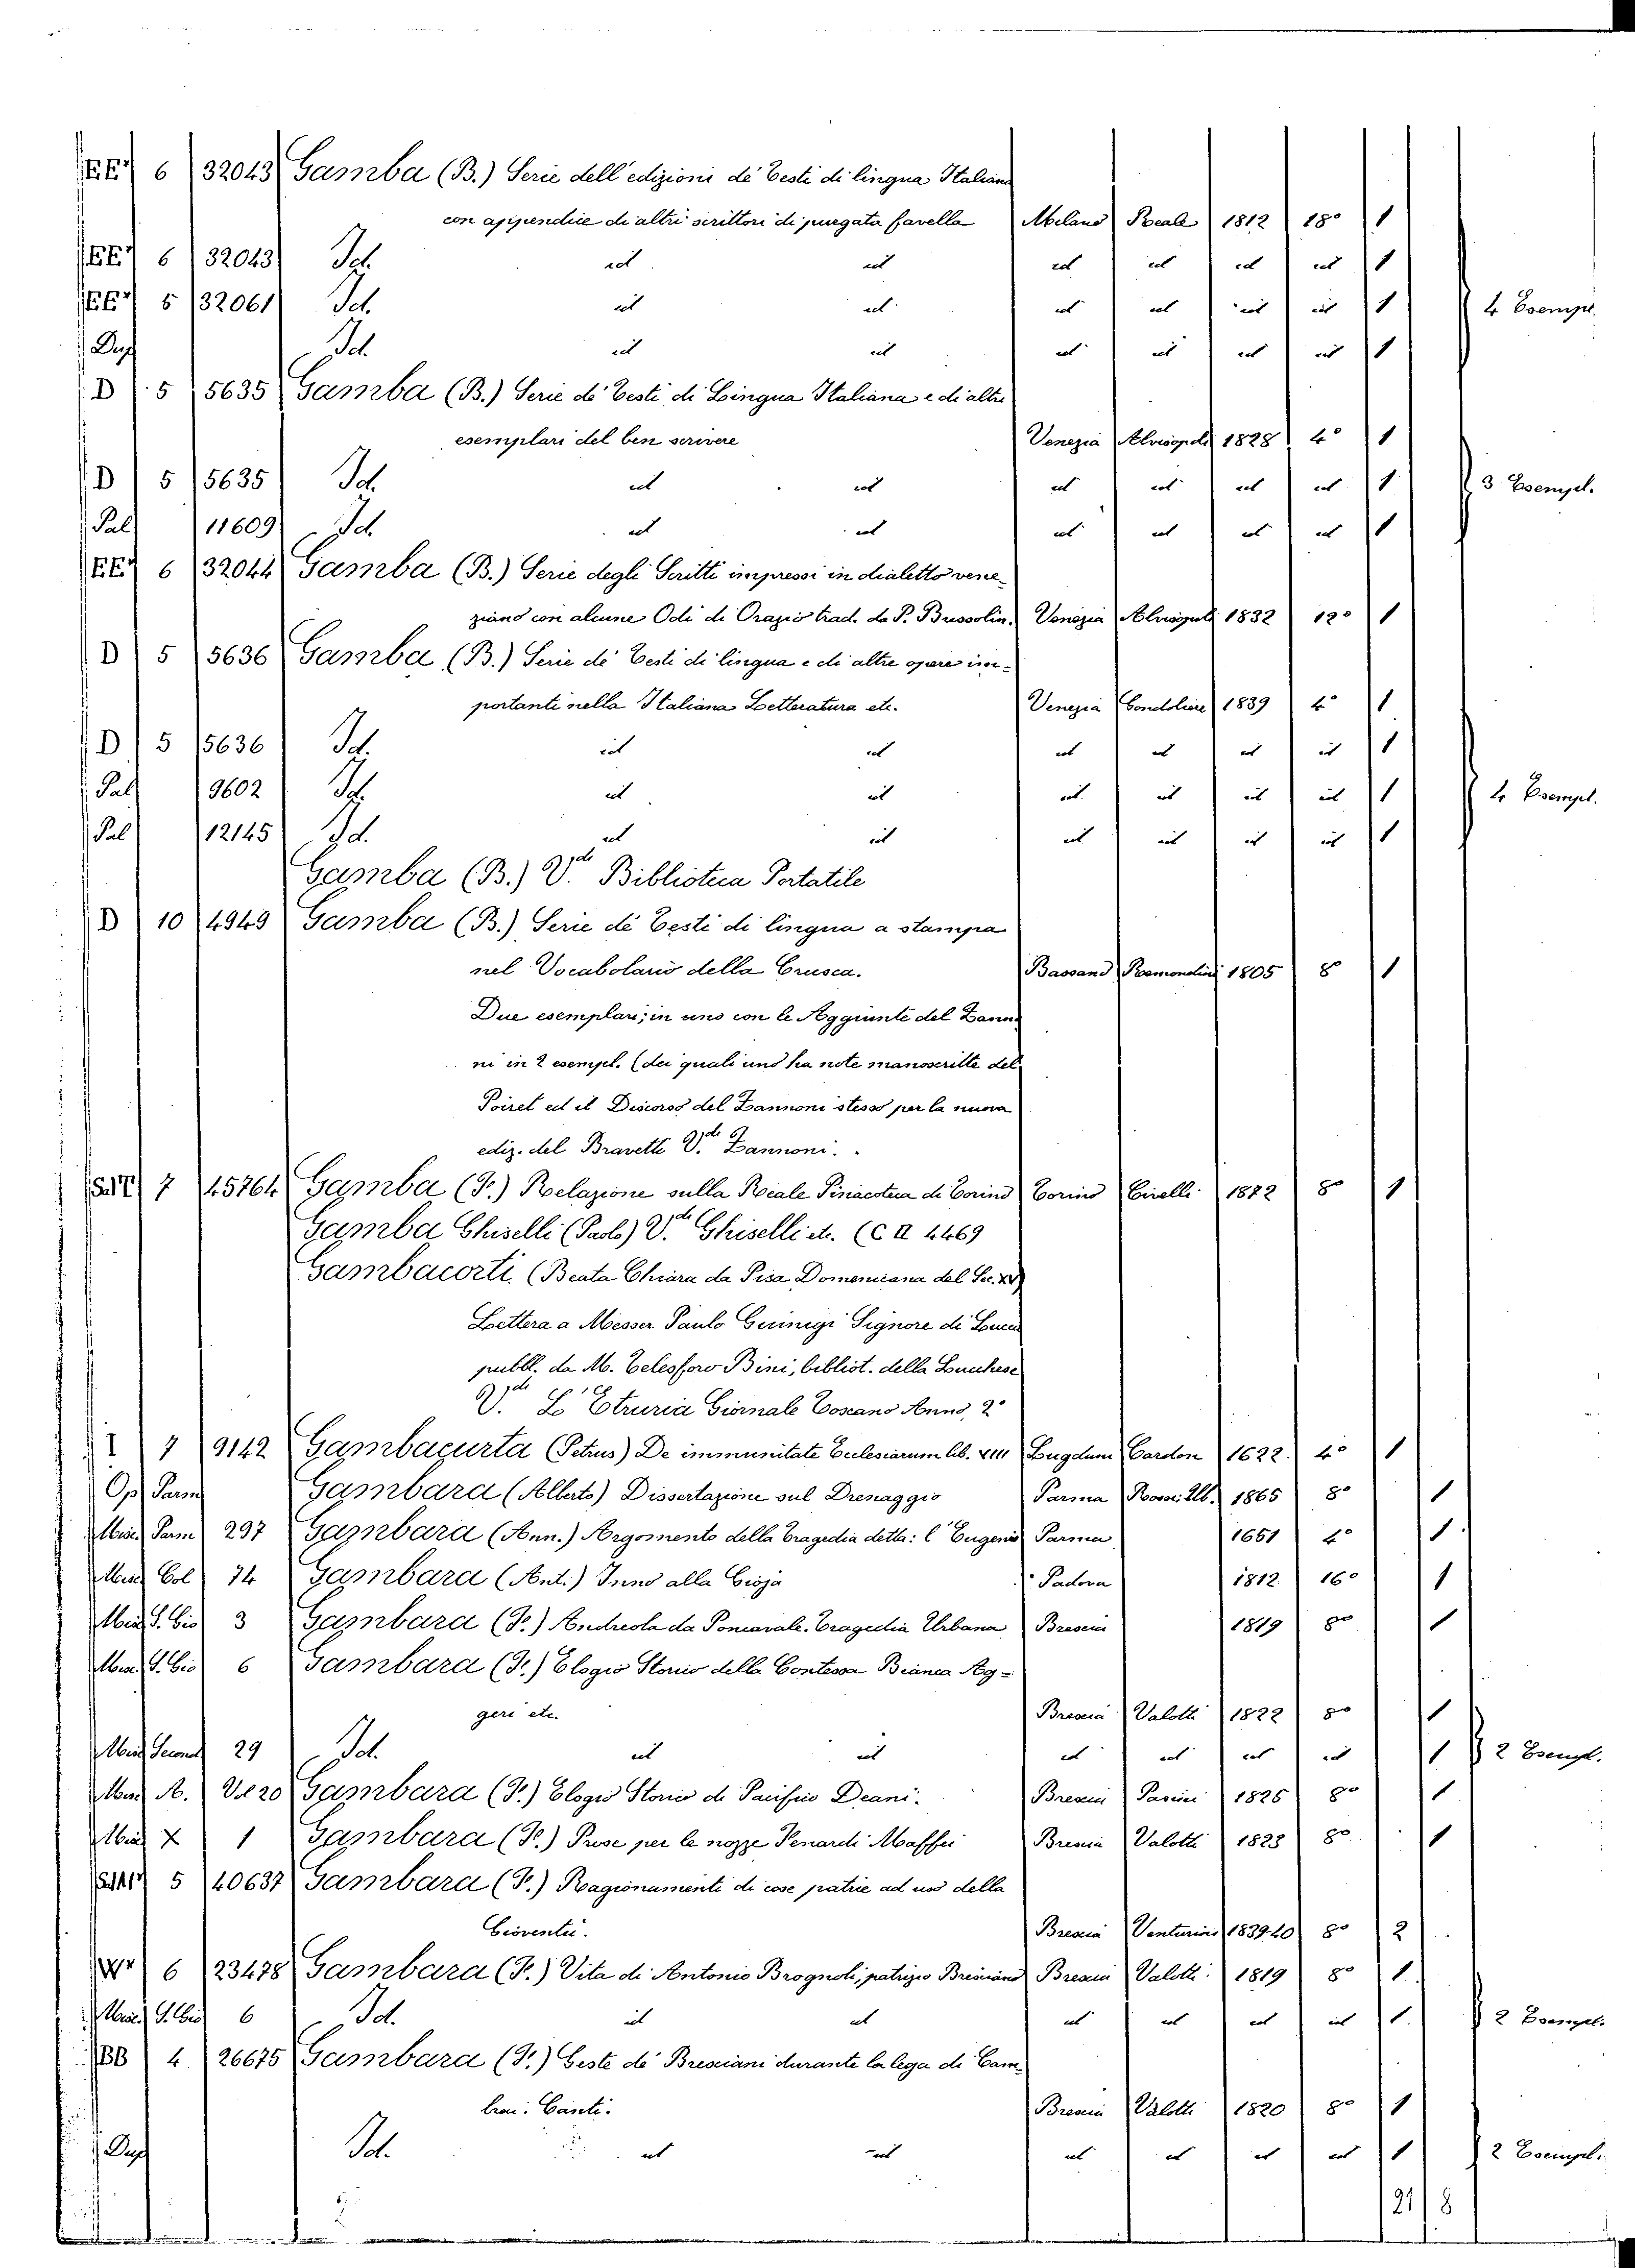 EE 6 32043 Gamba (B.) Serie dell'edizioni de' Testi di lingua Italiana
con appendice di altri scrittori di purgata favella Milano Reale 1812 18° 1
EE 6 32043 Id. id id id id id id 1
EE 5 32061 Id. id id id id id id 1 4 Esempl.
Dup Id. id id id id id id 1
D 5 5635 Gamba (B.) Serie de' Testi di Lingua Italiana e di altri
esemplari del ben scrivere Venezia Alvisopoli 1828 4° 1
D 5 5635 Id. id id id id id id 1 3 Esempl.
Pal 11609 Id. id id id id id id 1
EE 6 32044 Gamba (B.) Serie degli Scritti impressi in dialetto vene-
ziano con alcune Odi di Orazio trad. da P. Bussolin. Venezia Alvisopoli 1832 12° 1
D 5 5636 Gamba (B.) Serie de' Testi di lingua e di altre opere im-
portanti nella Italiana Letteratura etc. Venezia Gondoliere 1839 4° 1
D 5 5636 Id. id id id id id id 1
Pal 9602 Id. id id id id id id 1 4 Esempl.
Pal 12145 Id. id id id id id id 1
Gamba (B.) V.de Biblioteca Portatile
D 10 4949 Gamba (B.) Serie de' Testi di lingua a stampa
nel Vocabolario della Crusca. Bassano Remondini 1805 8° 1
Due esemplari; in uno con le Aggiunte del Zanno
ni in 2 esempl. (dei quali uno ha note manoscritte del
Poiret ed il Discorso del Zannoni stesso per la nuova
ediz. del Bravetti V.de Zannoni.
7 45764 Gamba (F.) Relazione sulla Reale Pinacoteca di Torino Torino Civelli 1872 8° 1
Gamba Ghiselli (Paolo) V.de Ghiselli etc. (C II 4469
Gambacorti. (Beata Chiara da Pisa Domenicana del Sec. XV)
Lettera a Messer Paulo Guinigi Signore di Lucca
pubbl. da M. Telesforo Bini, bibliot. della Lucchese
V.de L'Etruria Giornale Toscano Anno, 2°
I 7 9142 Gambacurta (Petrus) De immunitate Ecclesiarum lib. VIII Lugdum Cardon 1622. 4° 1
Op Parm Gambara (Alberto) Dissertazione sul Drenaggio Parma Rossi. Ub. 1865 8° 1
Misc. Parm 297 Gambara (Ann.) Argomento della Tragedia detta: l'Eugenio Parma 1651 4° 1
Misc Col 74 Gambara (Ant.) Inno alla Gioja Padova 1812 16° 1
Misc S. Bio 3 Gambara (F.) Andreola da Poncarale. Tragedia Urbana Brescia 1819 8° 1
Misc. S. Bio 6 Gambara (F.) Elogio Storico della Contessa Bianca Ag-
geri etc. Brescia Valotti 1822 8° 1
Misc Second 29 Id. id id id id id id 1 2 Esempl.
Misc A. Vol 20 Gambara (F.) Elogio Storico di Pacifico Deani. Brescia Pasini 1825 8° 1
Misc X 1 Gambara (F.) Prose per le nozze Fenardi Maffei Brescia Valotti 1828 8° 1
5 40637 Gambara (F.) Ragionamenti di cose patrie ad uso della
Gioventù. Brescia Venturini 1839-40 8° 2
6 23478 Gambara (F.) Vita di Antonio Brognoli, patrizio Bresciano Brescia Valotti. 1819 8° 1
Misc. S. Bio 6 Id. id id id id id id 1 2 Esempl.
BB 4 26675 Gambara (F.) Geste de' Bresciani durante la lega di Cam-
brai: Canti. Brescia Valotti 1820 8° 1
Dup Id. id id id id id id 1 2 Esempl.
21 8